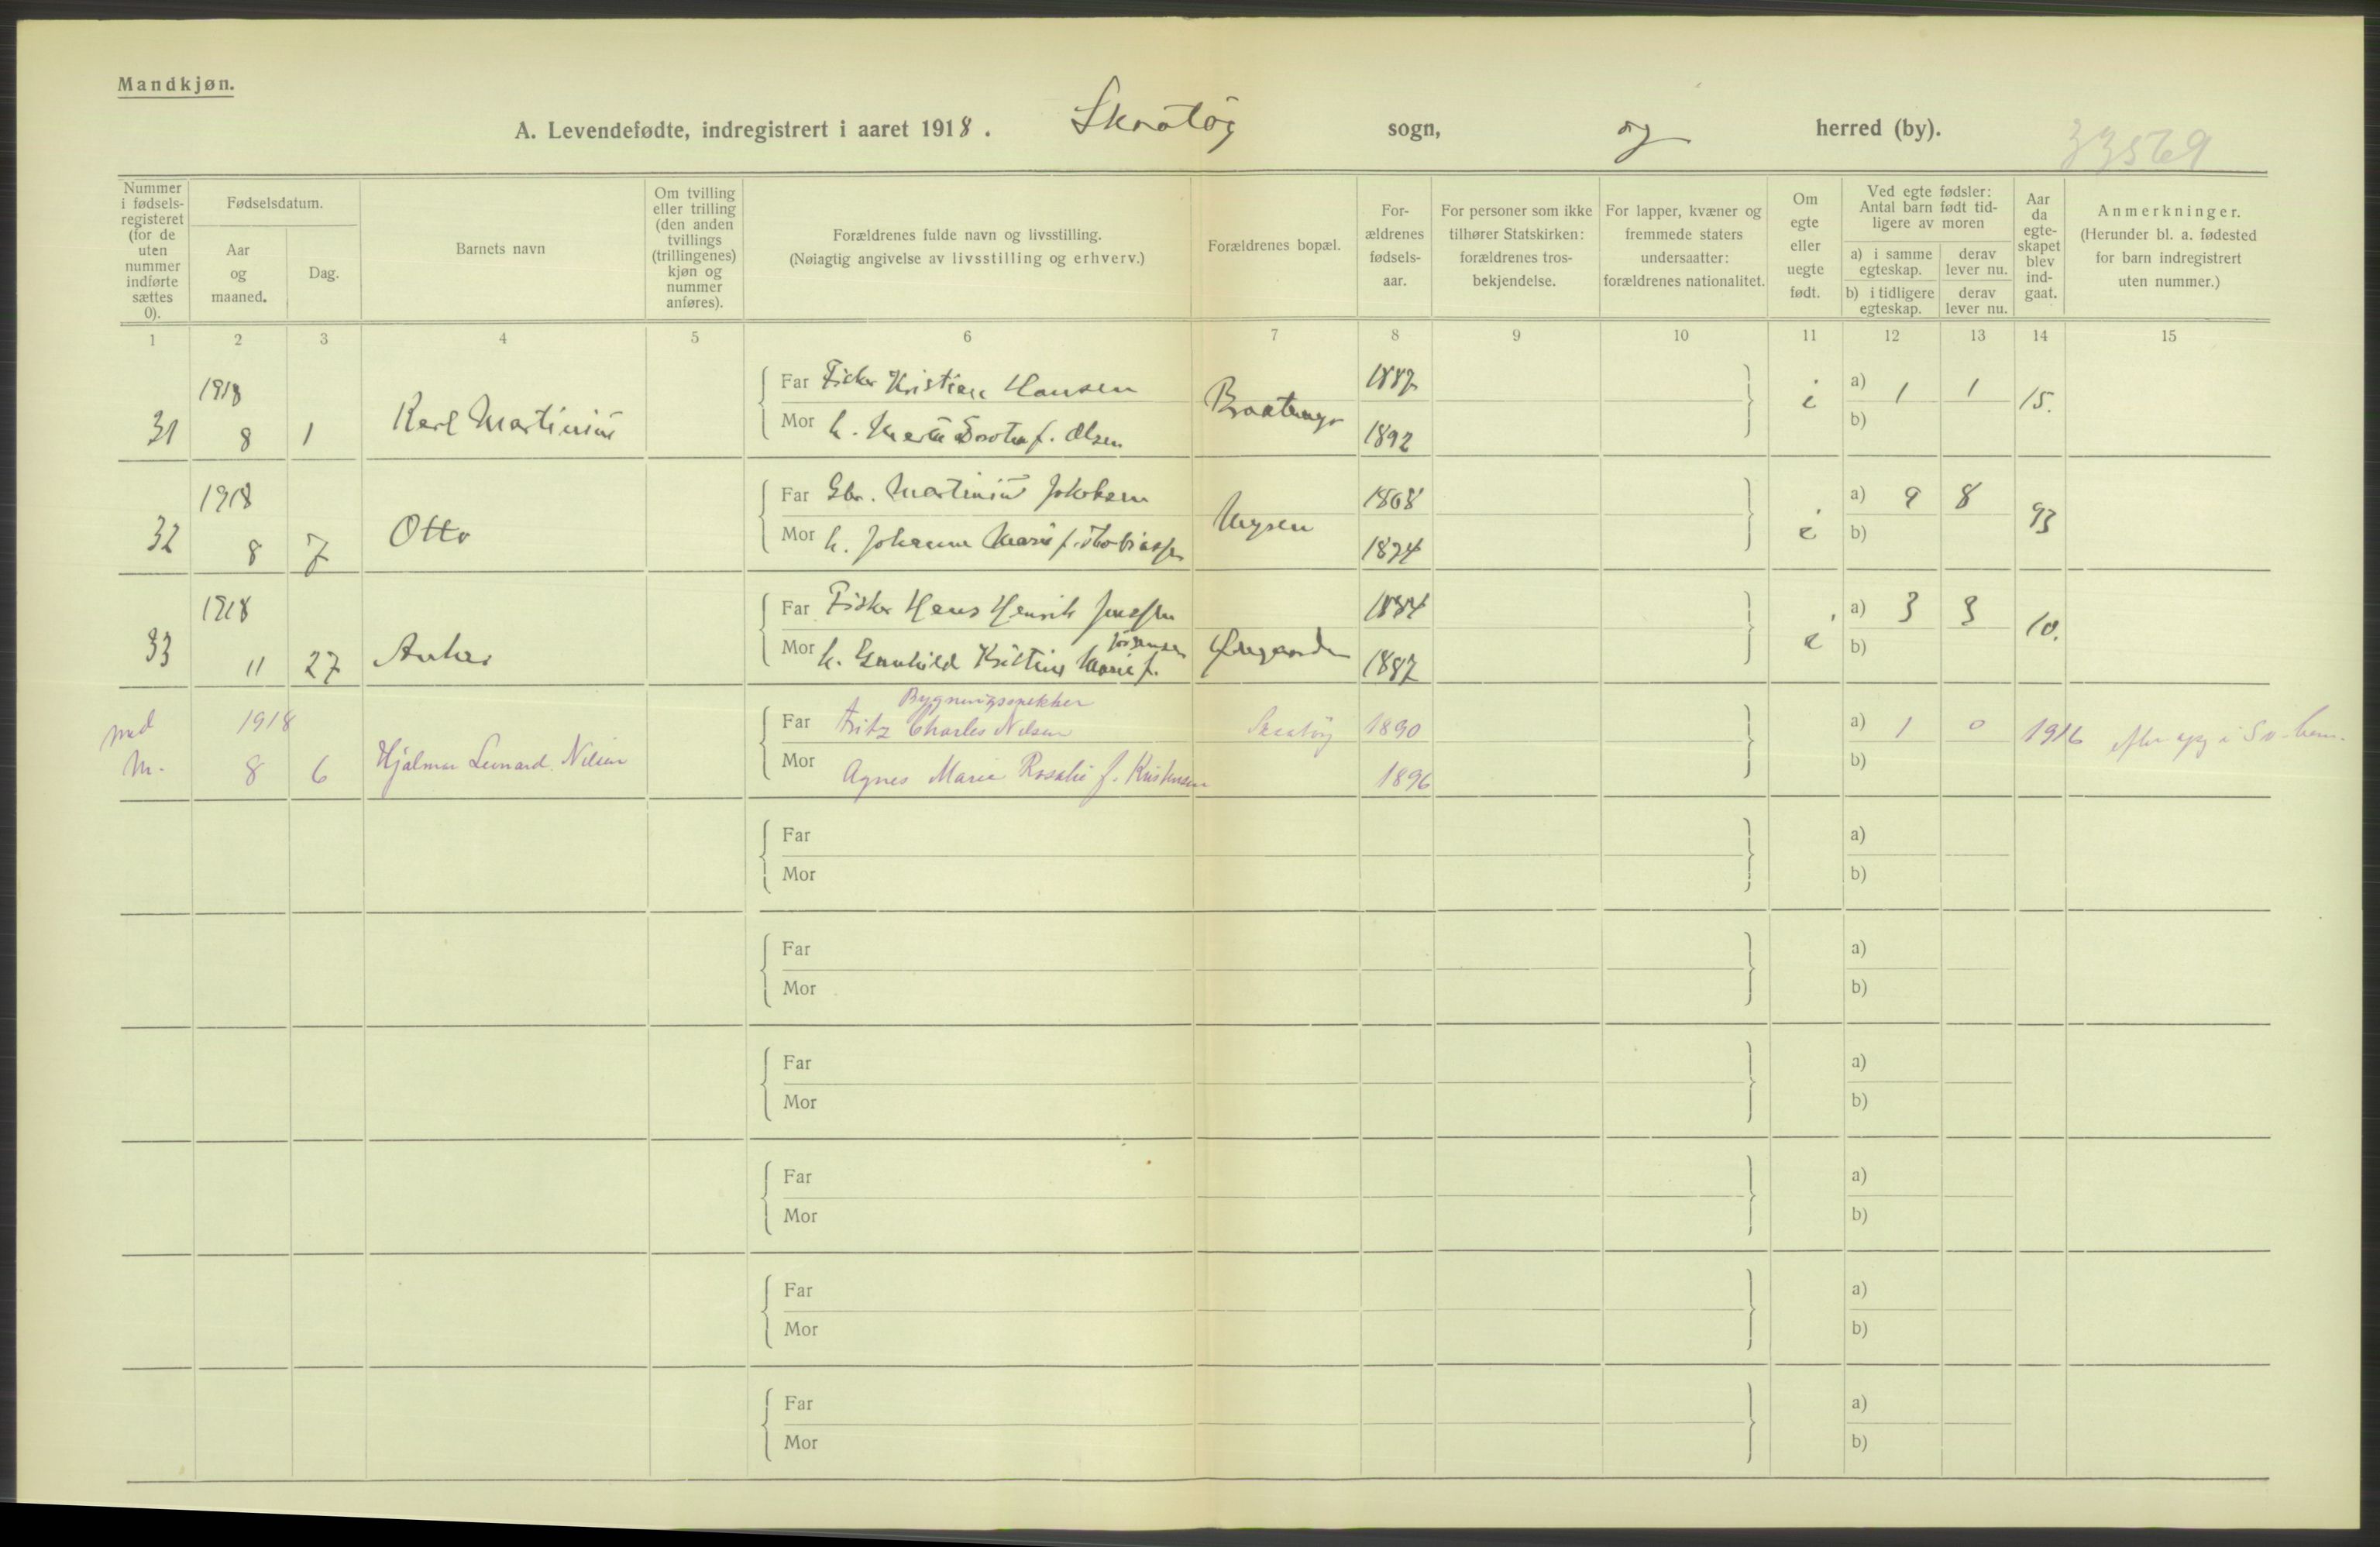 Mandkjøn.
A. Levendefødte, indregistrert i aaret 1918. Skåtøy sogn, og herred (by).
33569
Nummer i fødsels-registeret (for de uten nummer indførte sættes 0).
Fødselsdatum.
Aar og maaned.
Dag.
Barnets navn
Om tvilling eller trilling (den anden tvillings (trillingenes) kjøn og nummer anføres).
Forældrenes fulde navn og livsstilling.
(Nøiagtig angivelse av livsstilling og erhverv.)
Forældrenes bopæl.
For-ældrenes fødsels-aar.
For personer som ikke tilhører Statskirken: forældrenes tros-bekjendelse.
For lapper, kvæner og fremmede staters undersaatter: forældrenes nationalitet.
Om egte eller uegte født.
Ved egte fødsler: Antal barn født tid-ligere av moren
a) i samme egteskap.
derav lever nu.
b) i tidligere egteskap.
derav lever nu.
Aar da egte-skapet blev ind-gaat.
Anmerkninger.
(Herunder bl. a. fødested for barn indregistrert uten nummer.)
1 2 3 4 5 6 7 8 9 10 11 12 13 14 15
1918
31 8 1 Karl Martinius
Far Fisker Kristian Hansen 1887 a) 1 1 15.
Mor h. f. Olsen 1892 b)
1918
32 8 7 Otto
Far Martinius Jakobsen 1868 a) 9 8 93
Mor h. Johanne Marie f. Tobiassen 1874 e b)
1918
33 11 27 Anker
Far Fisker Hans Henrik Jensen 1884 a) 3 3 10.
Jørgensen
Mor h. Gunhild Kristine Marie f. Øregaarden 1887 e b)
med
M. 1918
8 6 Hjalmar Leonard Nilsen
Far Fritz Charles Nilsen Skaatöy 1890 a) 1 0 1916
Mor Agnes Marie Rosalie f. Kristensen 1896 b)
Far a)
Mor b)
Far a)
Mor b)
Far a)
Mor b)
Far a)
Mor b)
Far a)
Mor b)
Far a)
Mor b)